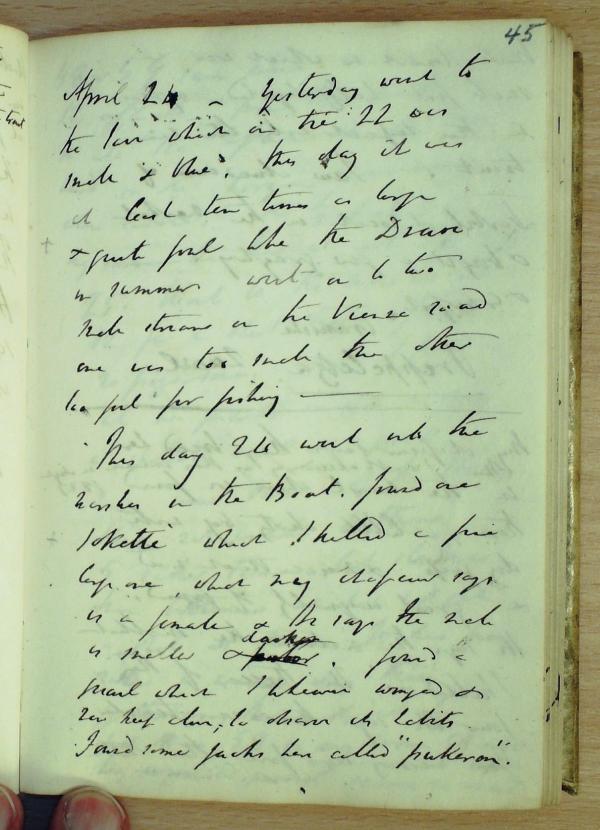 45
April 24 - Yesterday went to
the Laur which on the 22 was
small & blue. This day it was
at least ten times as large
& quite foul like the Drave
in summer went on to two
small streams on the road
one was too small the other
too foul for fishing —
This day 24 went into the
marshes in the Boat. found one
which I killed a fine
large one, which my says
is a female & He says the male
is smaller & darker. found a
which I likewise winged &
now keep alive, to observe its habits.
Found some jacks here called "